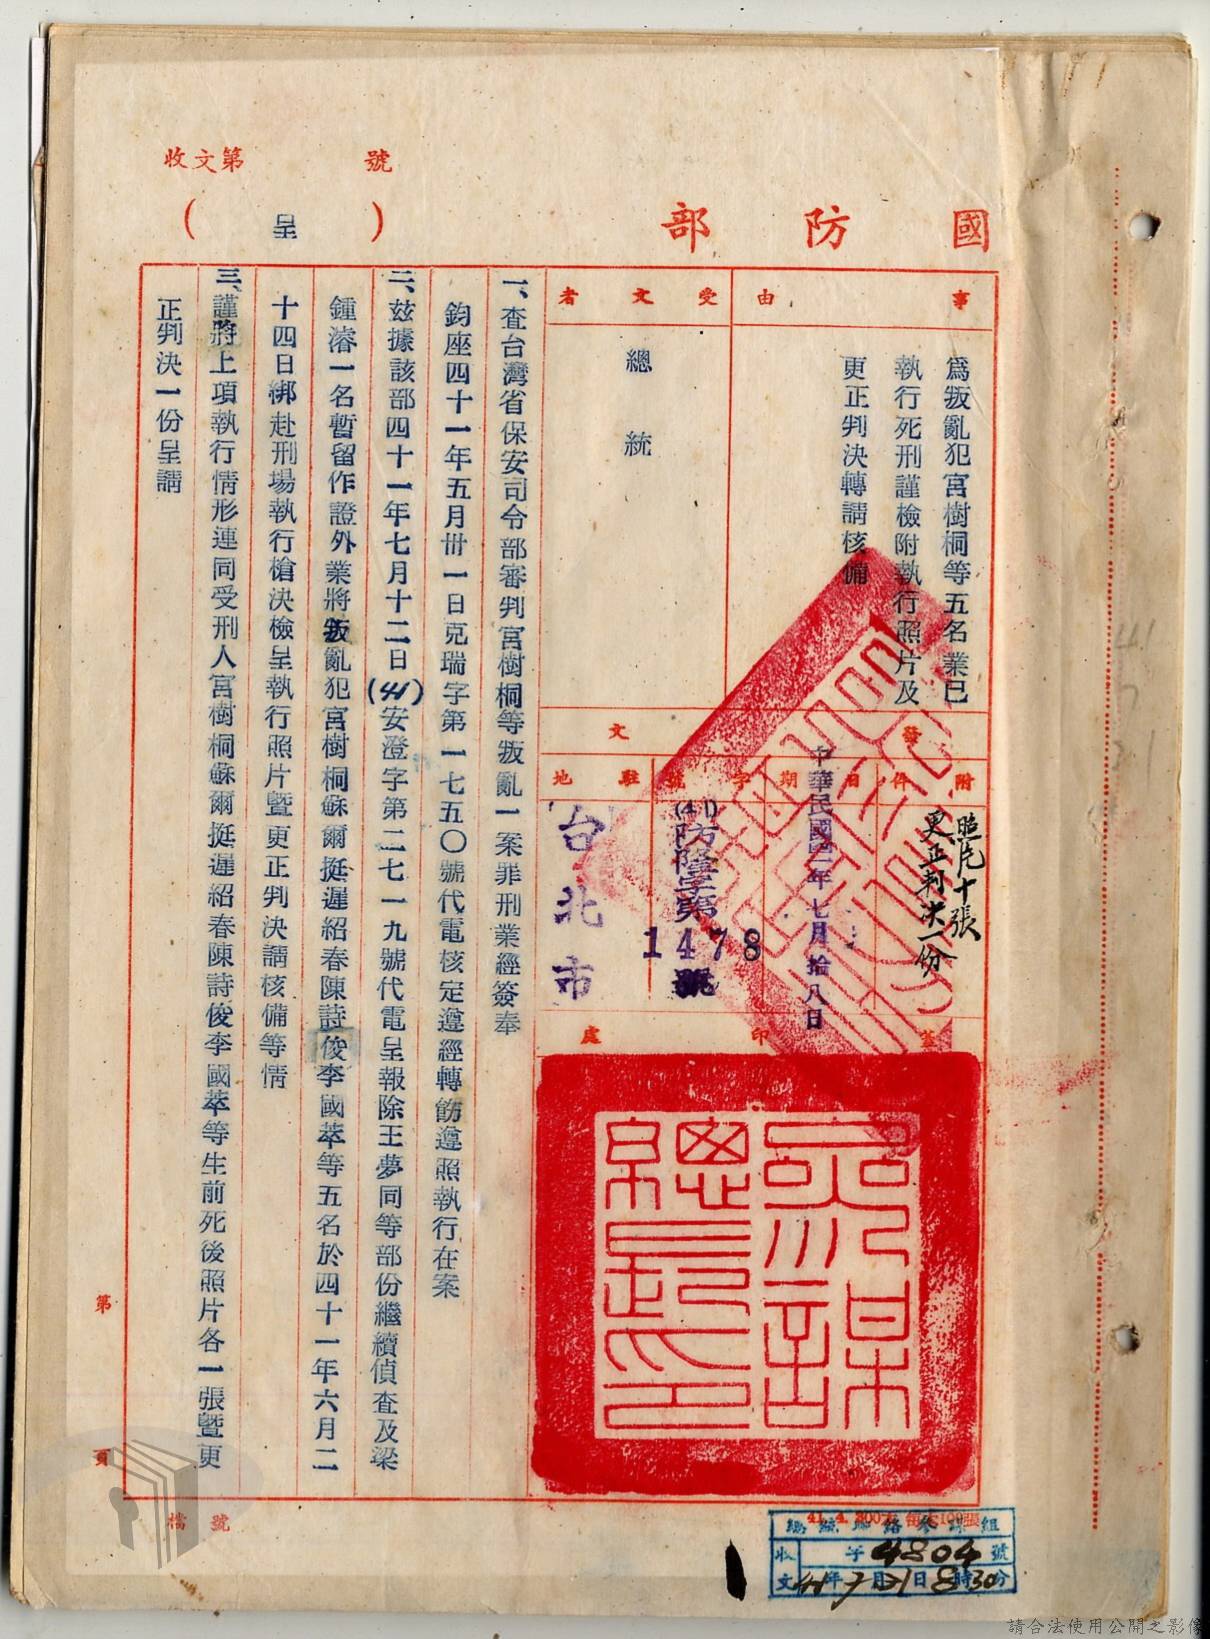 國防部
（呈）
收文第　　號
事由
為叛亂犯宮樹桐等五名業已
執行死刑謹檢附執行照片及
更正判決轉請核備
受文者
總統
發文
附件
照片十張
更正判決一份
日期
中華民國四一年七月拾八日
字號
(41)防隆字第
1478
號
駐地
台北市
蓋印處
參謀總長之印
一、查台灣省保安司令部審判宮樹桐等叛亂一案罪刑業經簽奉
鈞座四十一年五月卅一日克瑞字第一七五〇號代電核定遵經轉飭遵照執行在案
二、茲據該部四十一年七月十二日(41)安澄字第二七一九號代電呈報除王夢同等部份繼續偵查及梁
鍾濬一名暫留作證外業將叛亂犯宮樹桐蘇爾挺遲紹春陳詩俊李國萃等五名於四十一年六月二
十四日綁赴刑場執行槍決檢呈執行照片暨更正判決請核備等情
三、謹將上項執行情形連同受刑人宮樹桐蘇爾挺遲紹春陳詩俊李國萃等生前死後照片各一張暨更
正判決一份呈請
第　頁
檔號
總統聯絡參謀組
收　字4804號
文41年7月21日8時30分
請合法使用公開之影像